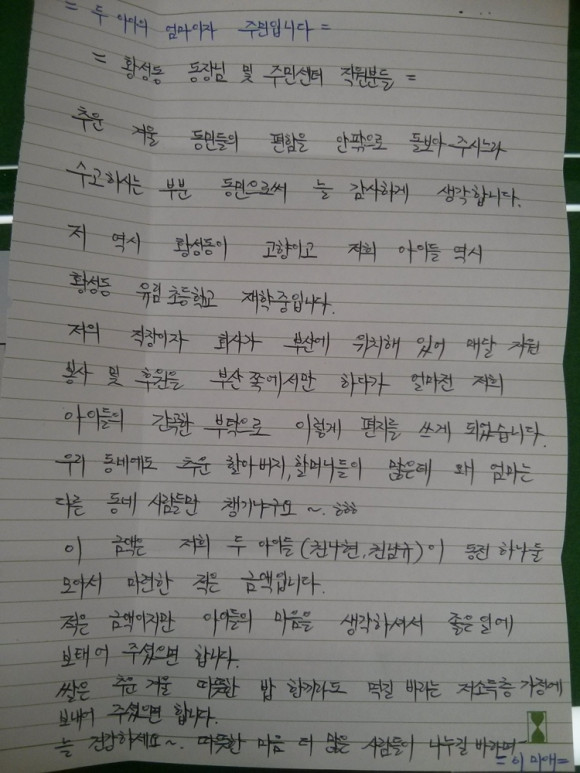 = 두 아이의 엄마이자 주민입니다 =
= 황성동 동장님 및 주민센터 직원분들 =
추운 겨울 동민들의 편함을 안팎으로 돌보아 주시느라
수고하시는 부분 동민으로써 늘 감사하게 생각합니다.
저 역시 황성동이 고향이고 저희 아이들 역시
황성동 유림초등학교 재학중입니다.
저의 직장이자 회사가 부산에 위치해 있어 매달 자원
봉사 및 후원을 부산쪽에서만 하다가 얼마전 저희
아이들의 간곡한 부탁으로 이렇게 편지를 쓰게 되었습니다.
우리 동네에도 추운 할아버지, 할머니들이 많은데 왜 엄마는
다른 동네 사람들만 챙기냐구요 ~. ㅎㅎㅎ
이 금액은 저희 두 아이들 (최나현, 최남규)이 동전 하나둘
모아서 마련한 작은 금액입니다.
적은 금액이지만 아이들의 마음을 생각하셔서 좋은일에
보태어 주셨으면 합니다.
쌀은 추운 겨울 따뜻한 밥 한끼라도 먹길 바라는 저소득층 가정에
보내어 주셨으면 합니다.
늘 건강하세요~. 따뜻한 마음 더 많은 사람들이 나누길 바라며
= 이미애 =